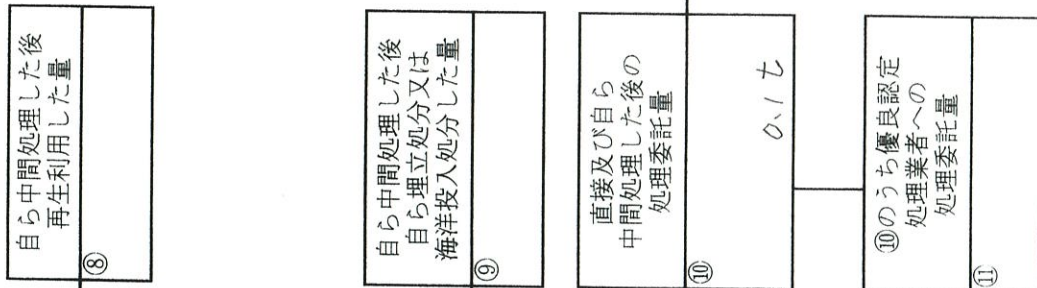 自ら中間処理した後
再生利用した量
⑧
自ら中間処理した後
自ら埋立処分又は
海洋投入処分した量
⑨
直接及び自ら
中間処理した後の
処理委託量
⑩
0.1 t
⑩のうち優良認定
処理業者への
処理委託量
⑪